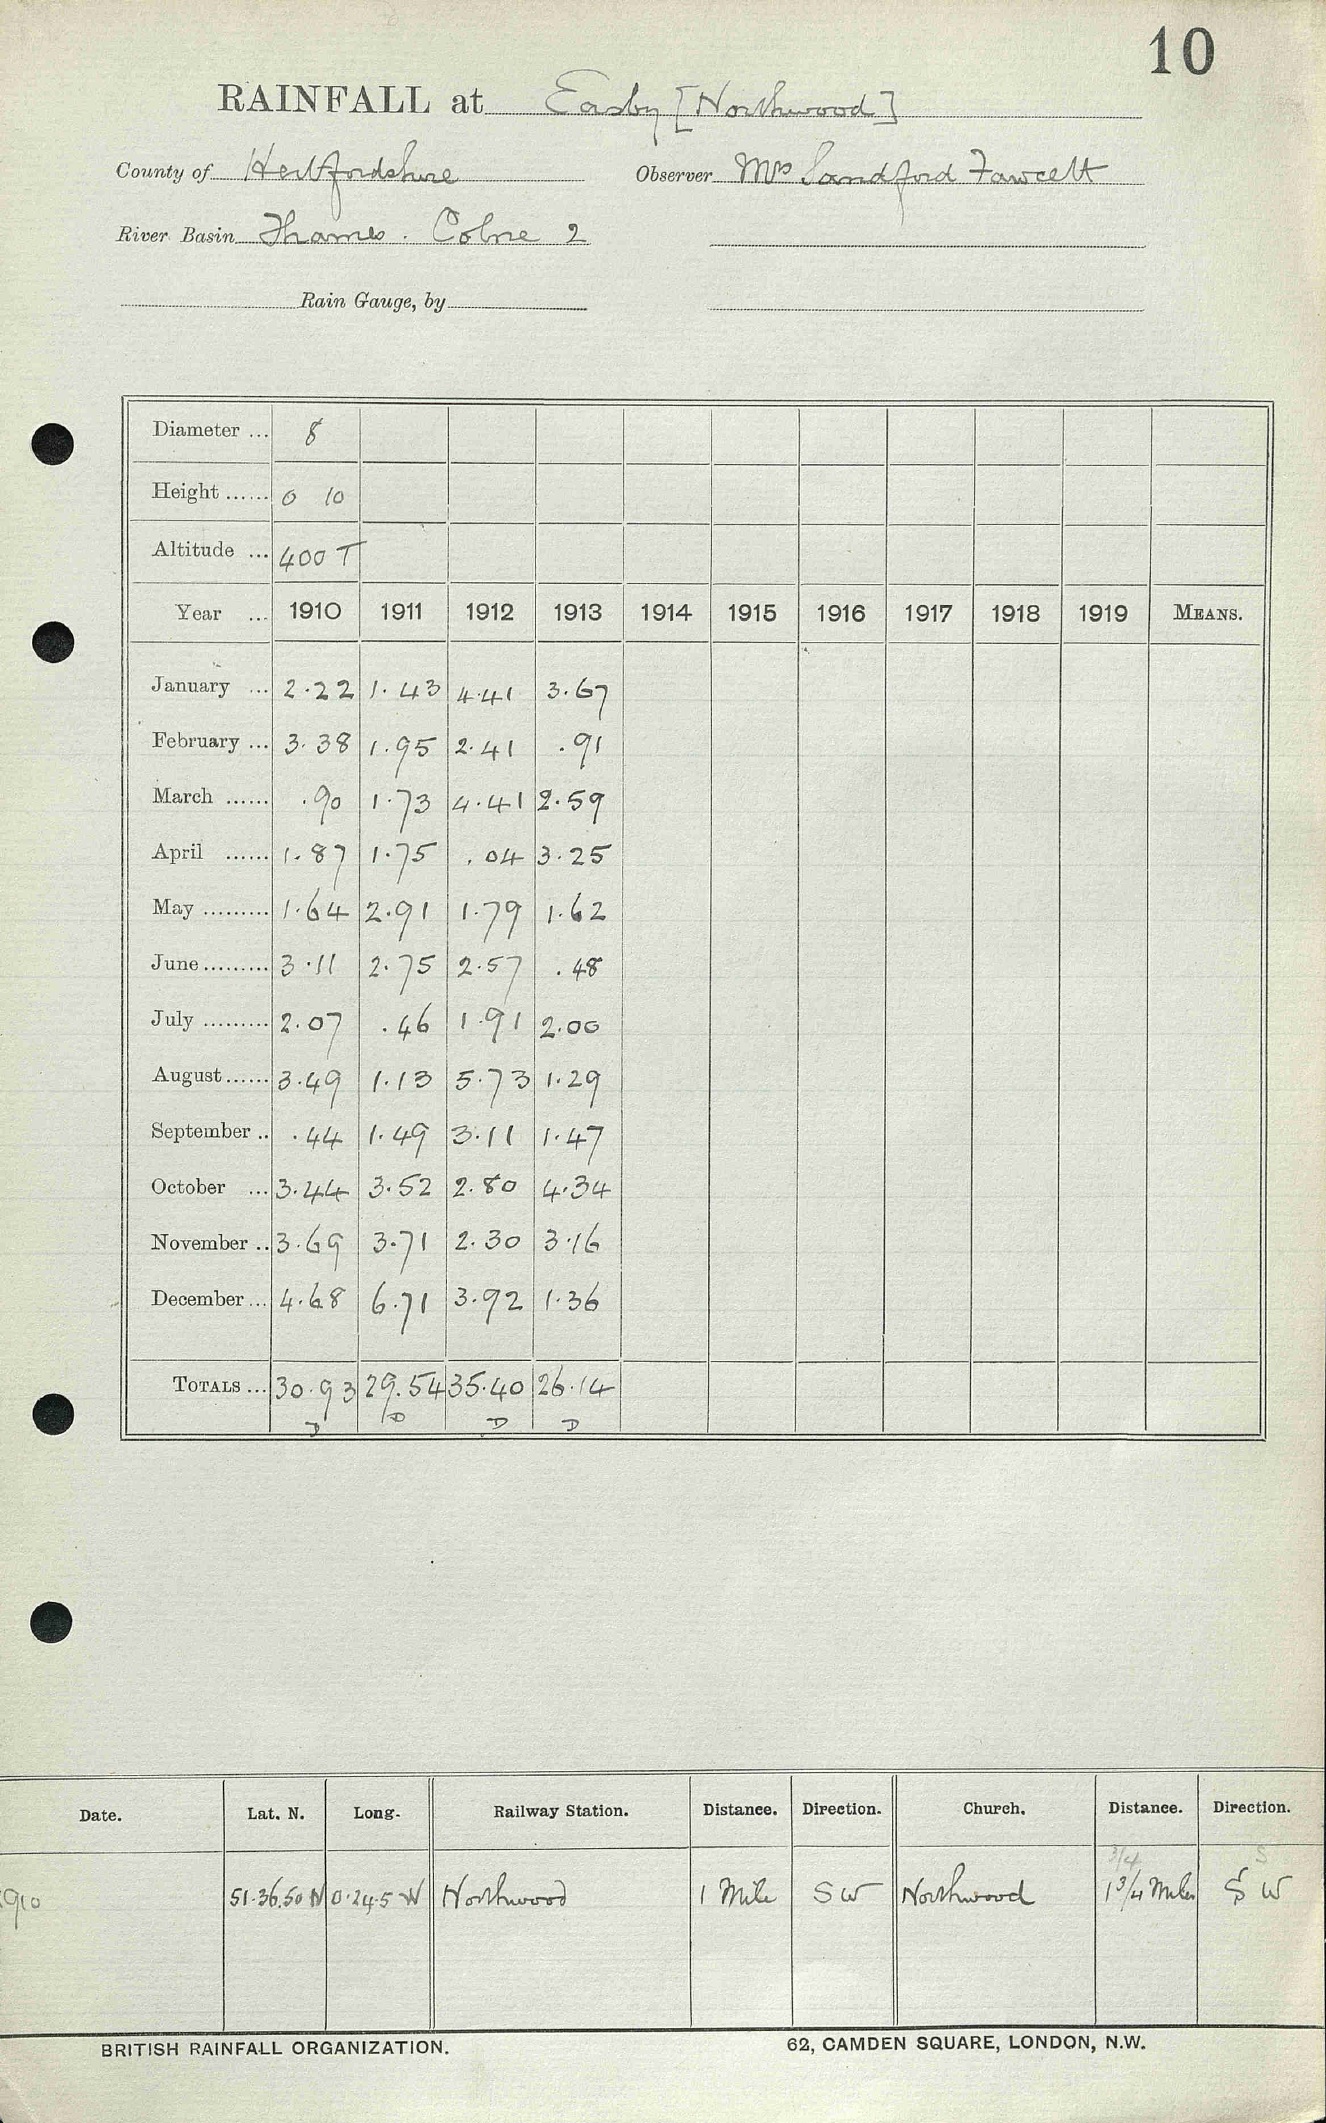 10
RAINFALL at Easby [Northwood]
County of Hertfordshire Observer Mrs Sandford Fawcett
River Basin Thames. Colne 2
Rain Gauge, by
Diameter ... 8
Height ...... 0 10
Altitude ... 400 T
Year ... 1910 1911 1912 1913 1914 1915 1916 1917 1918 1919 MEANS.
January ... 2.22 1.43 4.41 3.67
February ... 3.38 1.95 2.41 .91
March ...... .90 1.73 4.41 2.59
April ...... 1.87 1.75 .04 3.25
May ......... 1.64 2.91 1.79 1.62
June ......... 3.11 2.75 2.57 .48
July ......... 2.07 .46 1.91 2.00
August ...... 3.49 1.13 5.73 1.29
September .. .44 1.49 3.11 1.47
October ... 3.44 3.52 2.80 4.34
November .. 3.69 3.71 2.30 3.16
December ... 4.68 6.71 3.92 1.36
TOTALS ... 30.93 29.54 35.40 26.14
D D D D
Date. Lat. N. Long. Railway Station. Distance. Direction. Church. Distance. Direction.
3/4 S
1910 51.36.50 N 0.24.5 W Northwood 1 Mile SW Northwood 1 3/4 Miles S W
BRITISH RAINFALL ORGANIZATION. 62, CAMDEN SQUARE, LONDON, N.W.